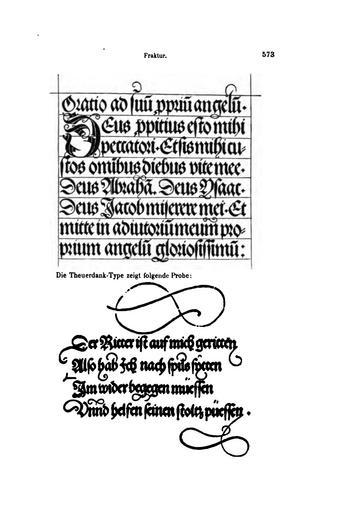 Fraktur. 573
Oratio ad suũ ꝓpriũ angelũ.
Deus ꝓpitius esto mihi
peccatori. Et sis mihi cu-
stos omibus diebus vite mee.
Deus Abrahã. Deus Ysaac.
Deus Jacob miserere mei. Et
mitte in adiutoriũ meum pro-
prium angelũ gloriosissimũ:
Die Theuerdank-Type zeigt folgende Probe:
Der Ritter ist auf mich geritten
Also hab Ich nach spils sytten
Im wider begegen müessen
Vnnd helfen seinen stoltz püessen.